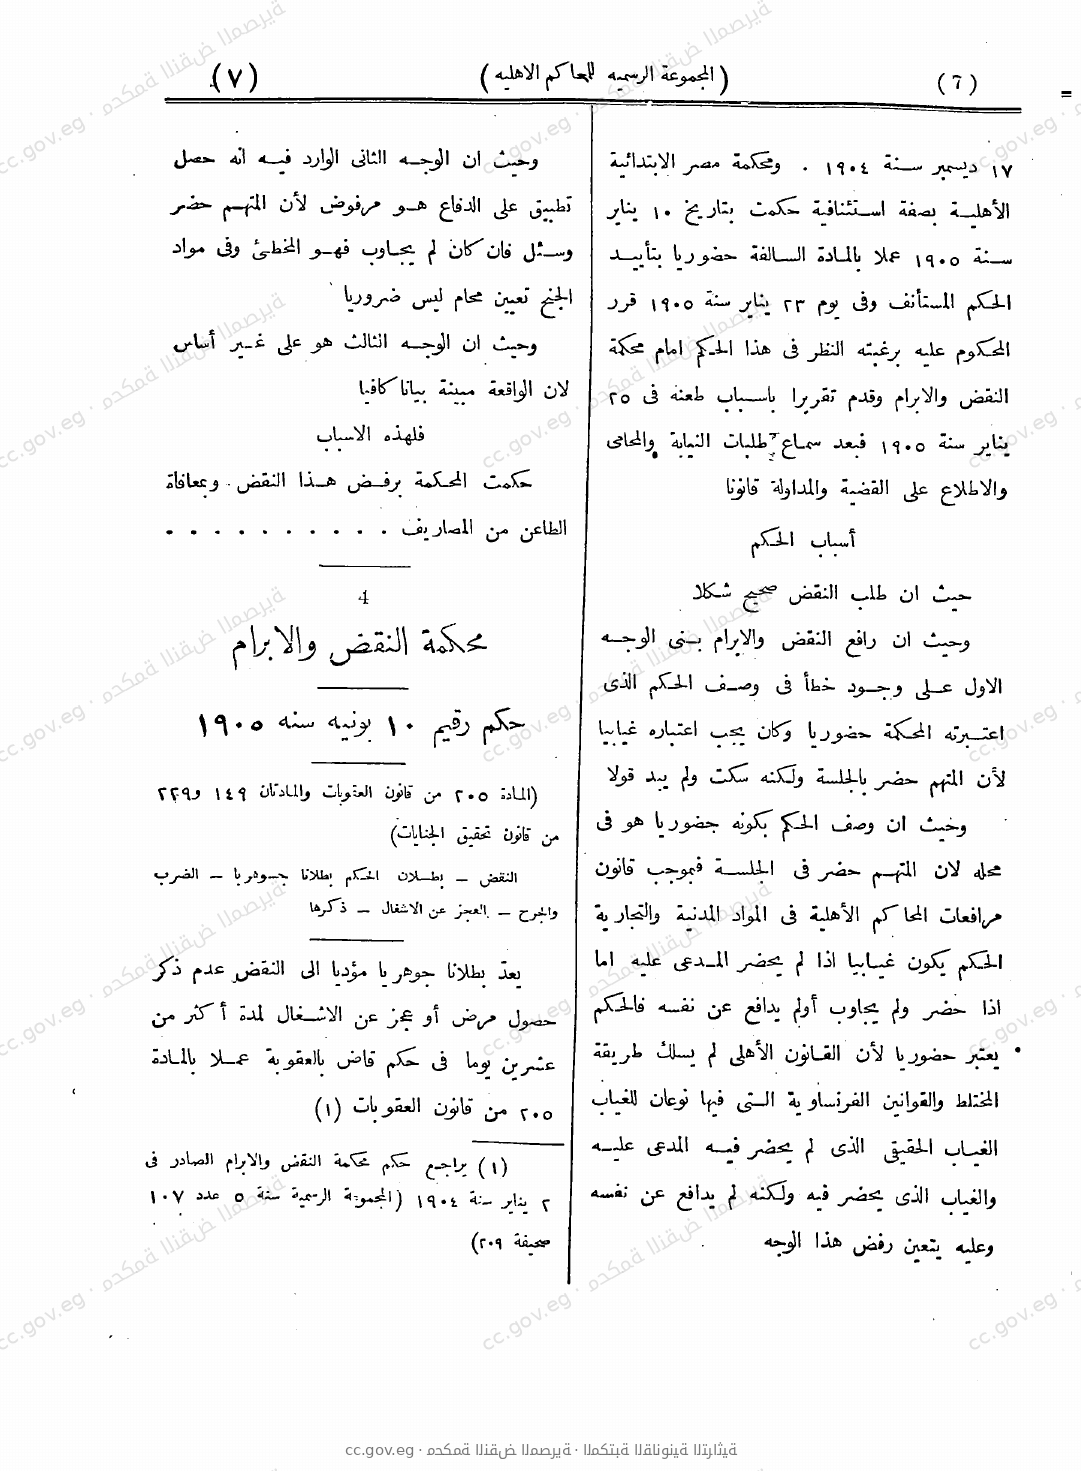 (٦)
(المجموعة الرسميه للمحاكم الاهليه)
(٧)
١٧ ديسمبر سنة ١٩٠٤ . ومحكمة مصر الابتدائية
الأهلية بصفة استئنافية حكمت بتاريخ ١٠ يناير
سنة ١٩٠٥ عملا بالمادة السالفة حضوريا بتأييد
الحكم المستأنف وفى يوم ٢٣ يناير سنة ١٩٠٥ قرر
المحكوم عليه برغبته النظر فى هذا الحكم امام محكمة
النقض والابرام وقدم تقريرا باسباب طعنه فى ٢٥
يناير سنة ١٩٠٥ فبعد سماع طلبات النيابة والمحامى
والاطلاع على القضية والمداولة قانونا
أسباب الحكم
حيث ان طلب النقض صحيح شكلا
وحيث ان رافع النقض والابرام بنى الوجه
الاول على وجود خطأ فى وصف الحكم الذى
اعتبرته المحكمة حضوريا وكان يجب اعتباره غيابيا
لأن المتهم حضر بالجلسة ولكنه سكت ولم يبد قولا
وحيث ان وصف الحكم بكونه حضوريا هو فى
محله لان المتهم حضر فى الجلسة فبموجب قانون
مرافعات المحاكم الأهلية فى المواد المدنية والتجارية
الحكم يكون غيابيا اذا لم يحضر المدعى عليه اما
اذا حضر ولم يجاوب أولم يدافع عن نفسه فالحكم
يعتبر حضوريا لأن القانون الأهلى لم يسلك طريقة
المختلط والقوانين الفرنساوية التى فيها نوعان للغياب
الغياب الحقيقى الذى لم يحضر فيه المدعى عليه
والغياب الذى يحضر فيه ولكنه لم يدافع عن نفسه
وعليه يتعين رفض هذا الوجه
وحيث ان الوجه الثانى الوارد فيه انه حصل
تطبيق على الدفاع هو مرفوض لأن المتهم حضر
وسئل فان كان لم يجاوب فهو المخطئ وفى مواد
الجنح تعيين محام ليس ضروريا
وحيث ان الوجه الثالث هو على غير أساس
لان الواقعة مبينة بيانا كافيا
فلهذه الاسباب
حكمت المحكمة برفض هذا النقض وبمعافاة
الطاعن من المصاريف . . . . . . . . . .
4
محكمة النقض والابرام
حكم رقيم ١٠ يونيه سنه ١٩٠٥
(المادة ٢٠٥ من قانون العقوبات والمادتان ١٤٩ و٢٢٩
من قانون تحقيق الجنايات)
النقض – بطلان الحكم بطلانا جوهريا – الضرب
والجرح – العجز عن الاشغال – ذكرها
يعدّ بطلانا جوهريا مؤديا الى النقض عدم ذكر
حصول مرض أو عجز عن الاشغال لمدة أكثر من
عشرين يوما فى حكم قاض بالعقوبة عملا بالمادة
٢٠٥ من قانون العقوبات (١)
(١) يراجع حكم محكمة النقض والابرام الصادر فى
٢ يناير سنة ١٩٠٤ (المجموعة الرسمية سنة ٥ عدد ١٠٧
صحيفة ٢٠٩)
cc.gov.eg · محكمة النقض المصرية · المكتبة القانونية التراثية